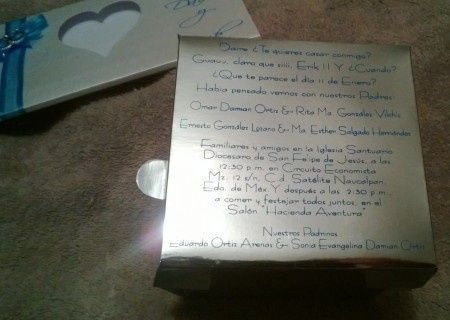 Dame ¿Te quieres casar conmigo?
claro que siiii, Erik !! Y ¿Cuando?
¿Que te parece el día 11 de Enero?
Habia pensado vernos con nuestros Padres:
Omar Damian Ortiz & Rita Ma. González Vilchis
Ernesto González Lozano & Ma. Esther Salgado Hernández
Familiares y amigos en la Iglesia Santuario
Diocesano de San Felipe de Jesús, a las
12:30 p.m. en Circuito Economista
Mz. 12 s/n, Cd. Satélite Naucalpan,
Edo. de Méx. Y después a las 2:30 p.m.,
a comer y festejar todos juntos, en el
Salón "Hacienda Aventura"
Nuestros Padrinos
Eduardo Ortiz Arenas & Sonia Evangelina Damian Ortiz